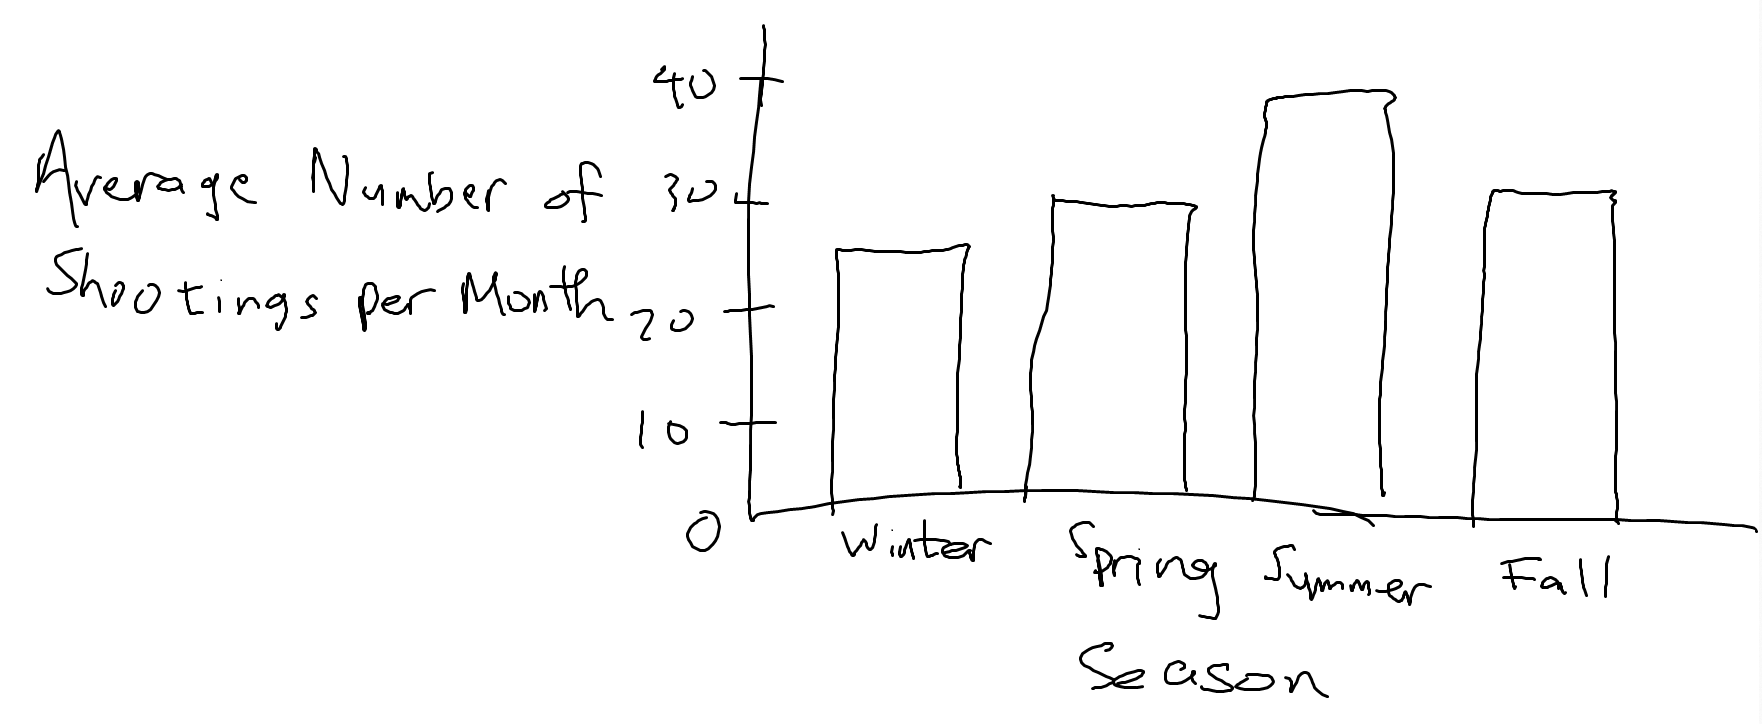 40
Average Number of
Shootings per Month
30
20
10
0
Winter Spring Summer Fall
Season